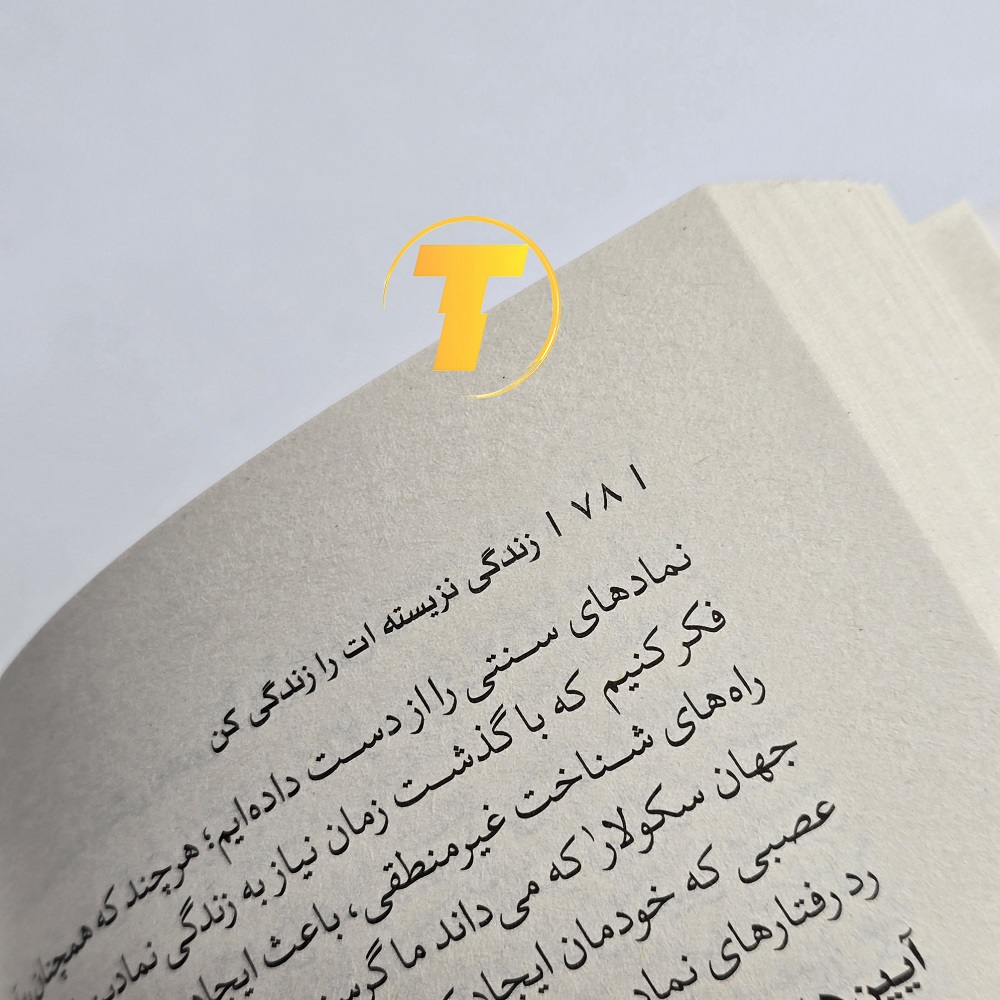 T
| ۷۸ | زندگی نزیسته ات را زندگی کن
نمادهای سنتی را از دست داده‌ایم؛ هرچند که همچنان
فکر کنیم که با گذشت زمان نیاز به زندگی نمادین
راه‌های شناخت غیرمنطقی، باعث ایجاد
جهان سکولار۱ که می‌داند ما
عصبی که خودمان ایجاد
رد رفتارهای
آیین